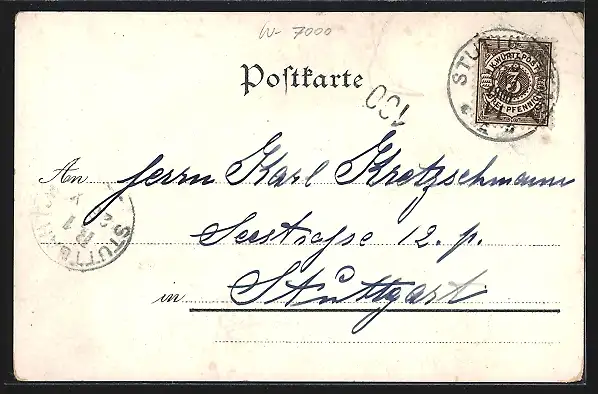 W-7000
Postkarte
K.WÜRTT.POST
3
DREI PFENNIG
STUTTG
100
An Herrn Karl Kretzschmann
Seestraße 12. p.
in Stuttgart
STUTTG